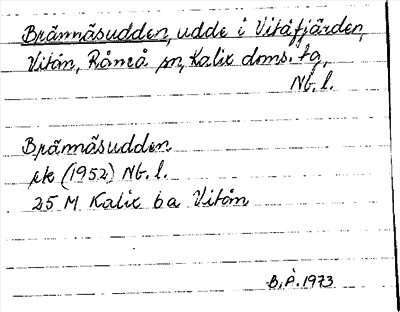 Brännäsudden, udde i Vitåfjärden,
Vitån, Råneå sn, Kalix doms. ta,
Nb. l.
Brännäsudden
sk (1952) Nb. l.
25 M Kalix 6a Vitån
B. P. 1973